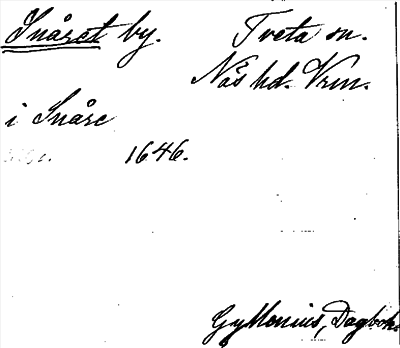 Snåret by. Tveta sn.
Näs hd. Vrm.
i Snåre
1646.
Gyllenius, Dagbok.